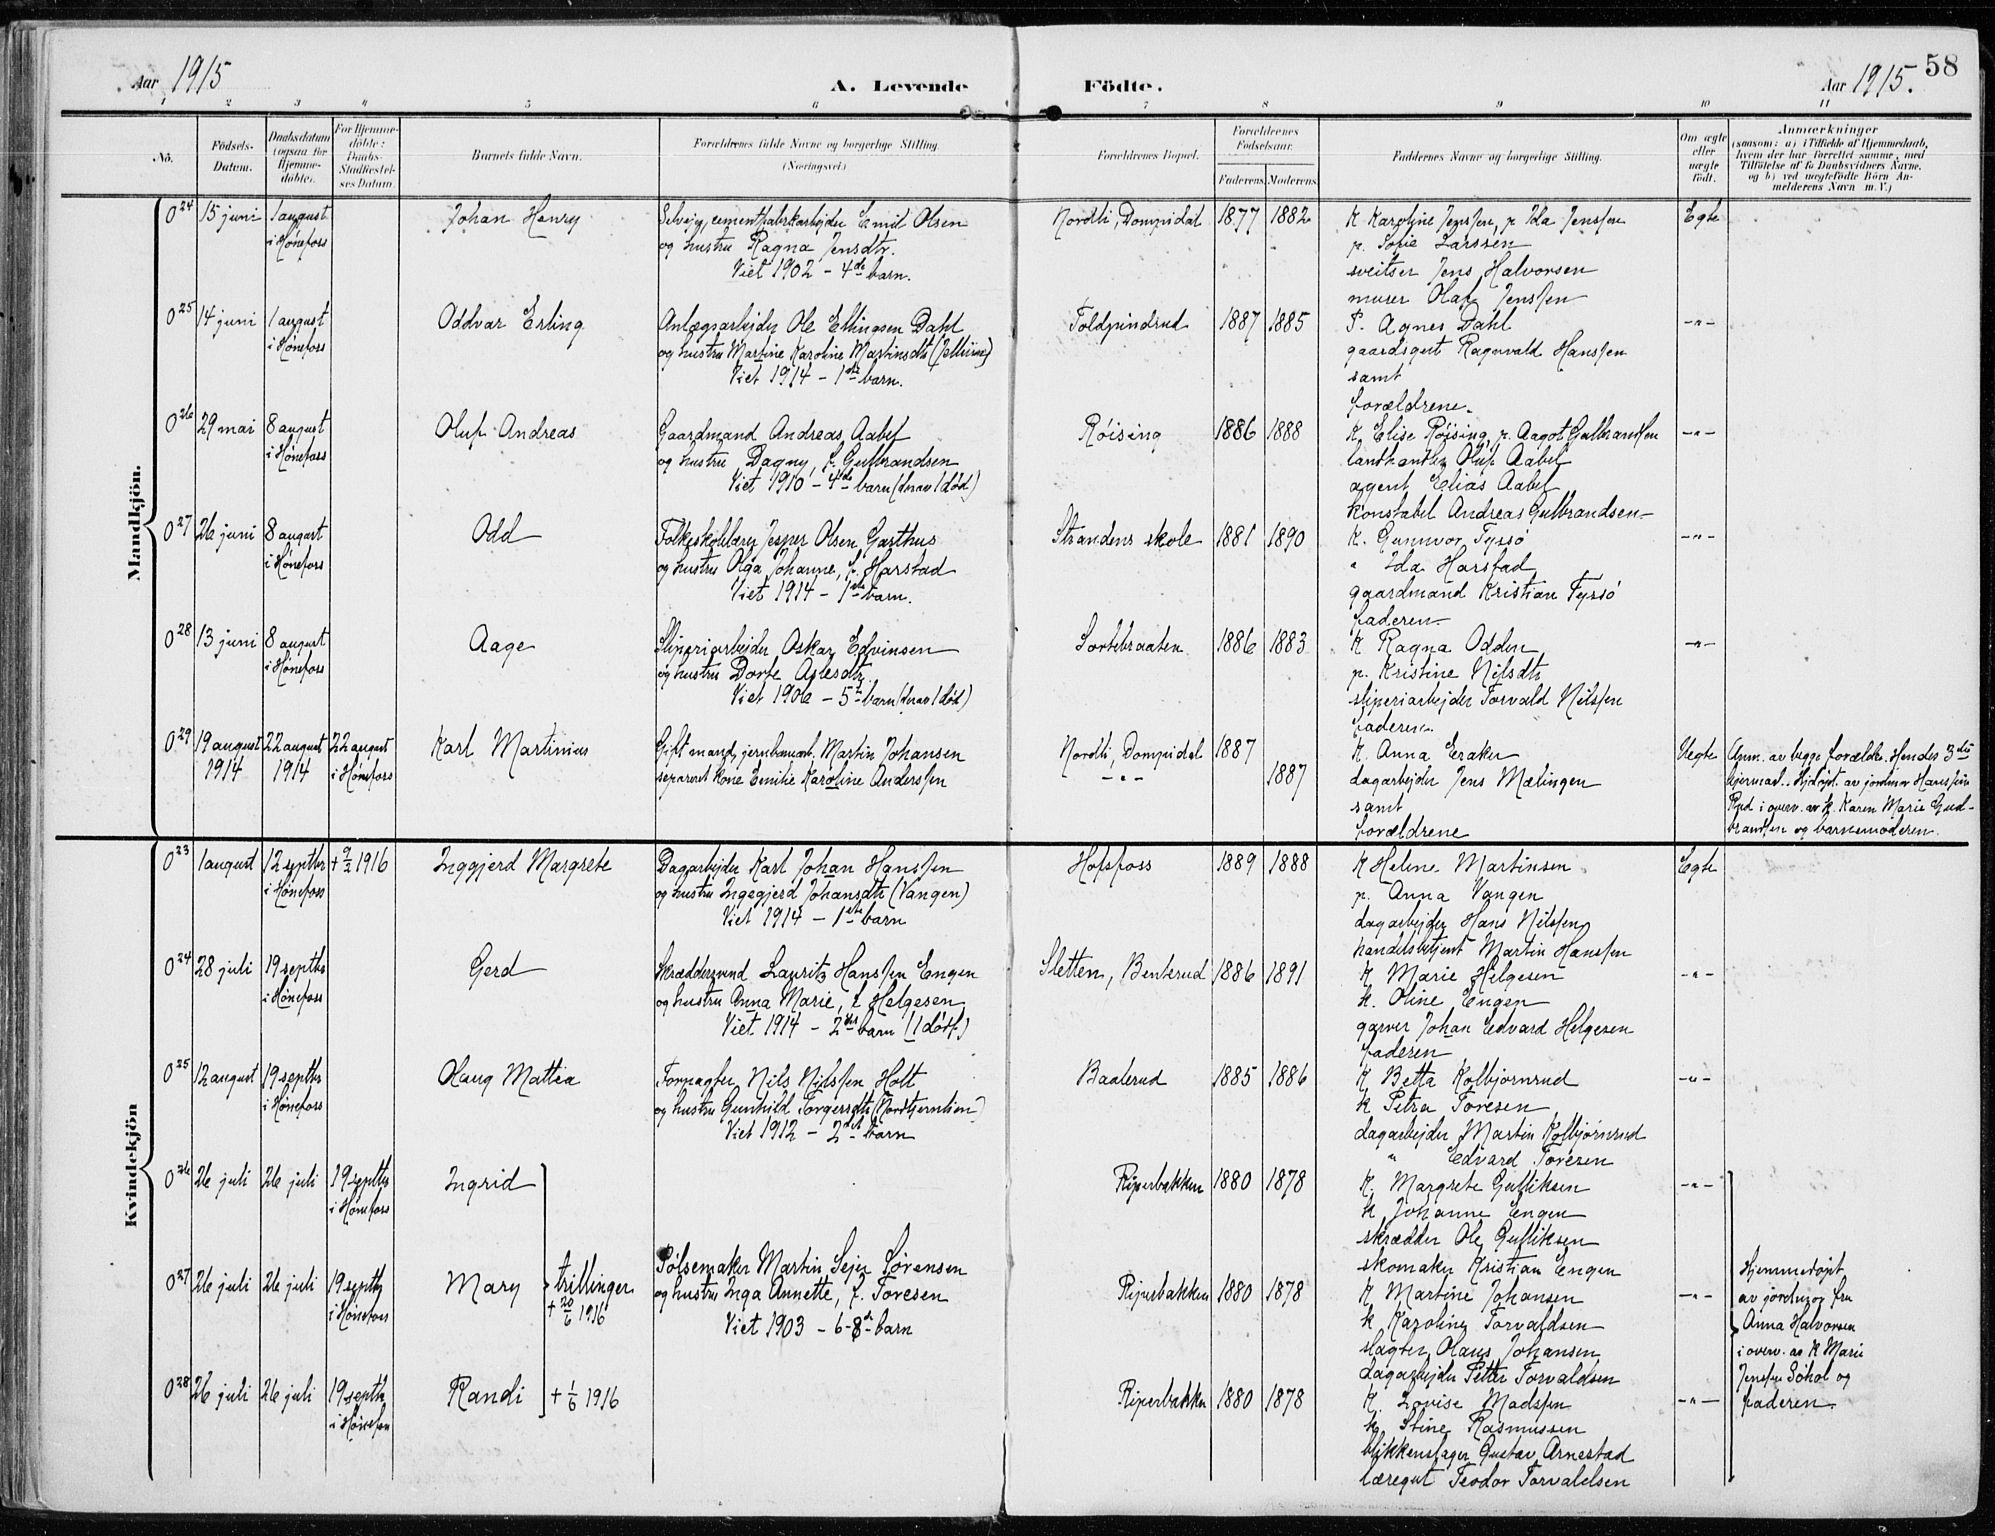 Aar 1915
A. Levende Födte.
Aar 1915.
58
1 2 3 4 5 6 7 8 9 10 11
No.
Födsels-Datum.
Daabsdatum (ogsaa for Hjemme-döbte).
For Hjemme-döbte: Daabs-Stadfæstel-ses Datum.
Barnets fulde Navn.
Forældrenes fulde Navne og borgerlige Stilling.
(Næringsvei.)
Forældrenes Bopæl.
Forældrenes Födselsaar.
Faderens. Moderens.
Faddernes Navne og borgerlige Stilling.
Om ægte eller uægte födt.
Anmærkninger
(saasom: a) i Tilfælde af Hjemmedaab,
hvem der har forrettet samme, med
Tilföielse af to Daabsvidners Navne,
og b) ved uægtefödte Börn An-
melderens Navn m. V.)
Mandkjön.
24 15 juni 1 august i Hønefoss Johan Henry
Selveig, cementfabrikarbejder Emil Olsen
og hustru Ragna Jensdtr.
Viet 1902 - 4de barn.
Nordli, Dompidal 1877 1882
K Karoline Jenssen, p Ida Jenssen
p. Sofie Larssen
sveitser Jens Halvorsen
murer Olaf Jenssen
Egte
25 14 juni 1 august i Hønefoss Oddvar Erling
Anlægsarbejder Ole Ellingsen Dahl
og hustru Martine Karoline Martinsdtr
Viet 1914 - 1ste barn.
1887 1885
P. Agnes Dahl
gaardsgut Ragnvald Hanssen
samt
forældrene
-"-
26 29 mai 8 august i Hønefoss Oluf Andreas
Gaardmand Andreas Aabel
og hustru Dagny, f. Gulbrandsen
Viet 1910 - 4de barn (derav 1 død)
Røising 1886 1888
K. Elise Røising, p. Aagot Gulbrandsen
landhandler Oluf Aabel
agent Elias Aabel
konstabel Andreas Gulbrandsen
-"-
27 26 juni 8 august i Hønefoss Odd
Folkeskolelærer Jesper Olsen Garthus
og hustru Olga Johanne, f. Harstad
Viet 1914 - 1ste barn.
Strandens skole 1881 1890
K. Gunnvor Tyssø
" Ida Harstad
gaardmand Kristian Tyssø
faderen
-"-
28 13 juni 8 august i Hønefoss Aage
Sliperiarbejder Oskar Edvinsen
og hustru Dorte Aslesdtr.
Viet 1906 - 5te barn (derav 1 død)
Sortebraaten 1886 1883
K Ragna Odden
p. Kristine Nilsdtr
sliperiarbejder Torvald Nilssen
faderen
-"-
29 19 august 1914 22 august 1914 22 august i Hønefoss Karl Martinius
Gift mand, jernbanearb. Martin Johansen
separert kone Emilie Karoline Anderssen
Nordli, Dompidal 1887
-"- 1887
K. Anna Eraker
dagarbejder Jens Mælingen
samt
forældrene
Uegte
Anm. av begge forældre. Hendes 3die
av jordmor Hanssine
Rud i overv. av k. Karen Marie Gud-
brandsen og barnemoderen.
Kvindekjön
23 1 august 12 septbr i Hønefoss + 9/2 1916 Inggjerd Margrete
Dagarbejder Karl Johan Hanssen
og hustru Ingegjerd Johansdtr (Vangen)
Viet 1914 - 1ste barn
Hofsfoss 1889 1888
K Helene Martinsen
p. Anna Vangen
dagarbejder Hans Nilssen
handelsbetjent Martin Hanssen
Egte
24 28 juli 19 septbr i Hønefoss Gerd
Skræddersvend Lauritz Hanssen Engen
og hustru Anna Marie, f. Helgesen
Viet 1914 - 2det barn (1 død)
Sletten, Benterud 1886 1891
K Marie Helgesen
k. Oline Engen
garver Johan Edvard Helgesen
faderen
-"-
25 12 august 19 septbr i Hønefoss Olaug Mattea
Forpagter Nils Nilssen Holt
og hustru Gunhild Torgersdtr (Nordtjernlien)
Viet 1912 - 2det barn
Baalerud 1885 1886
K Betta Kolbjørnrud
k Petra Toresen
dagarbejder Martin Kolbjørnrud
" Edvard Toresen
-"-
26 26 juli 26 juli 19 septbr i Hønefoss Ingrid
Riperbakken 1880 1878
K. Margrete Gulliksen
k Johanne Engen
skrædder Ole Gulliksen
skomaker Kristian Engen
-"-
27 26 juli 26 juli 19 septbr i Hønefoss Mary trillinger
+ 20/6 1916
Pølsemaker Martin Sejer Sørensen
og hustru Inga Annette, f. Toresen
Viet 1903 - 6-8de barn
Riperbakken 1880 1878
K Martine Johansen
k Karoline Torvaldsen
slagter Olaus Johansen
dagarbejder Petter Torvaldsen
-"-
Hjemmedøpt
av jordmor fru
Anna Halvorsen
i overv. av k Marie
Jensen Sohol og
faderen.
28 26 juli 26 juli 19 septbr i Hønefoss Randi + 1/6 1916
Riperbakken 1880 1878
K. Lovise Madssen
k Stine Rasmussen
blikkenslager Gustav Arnestad
læregut Teodor Torvaldsen
-"-